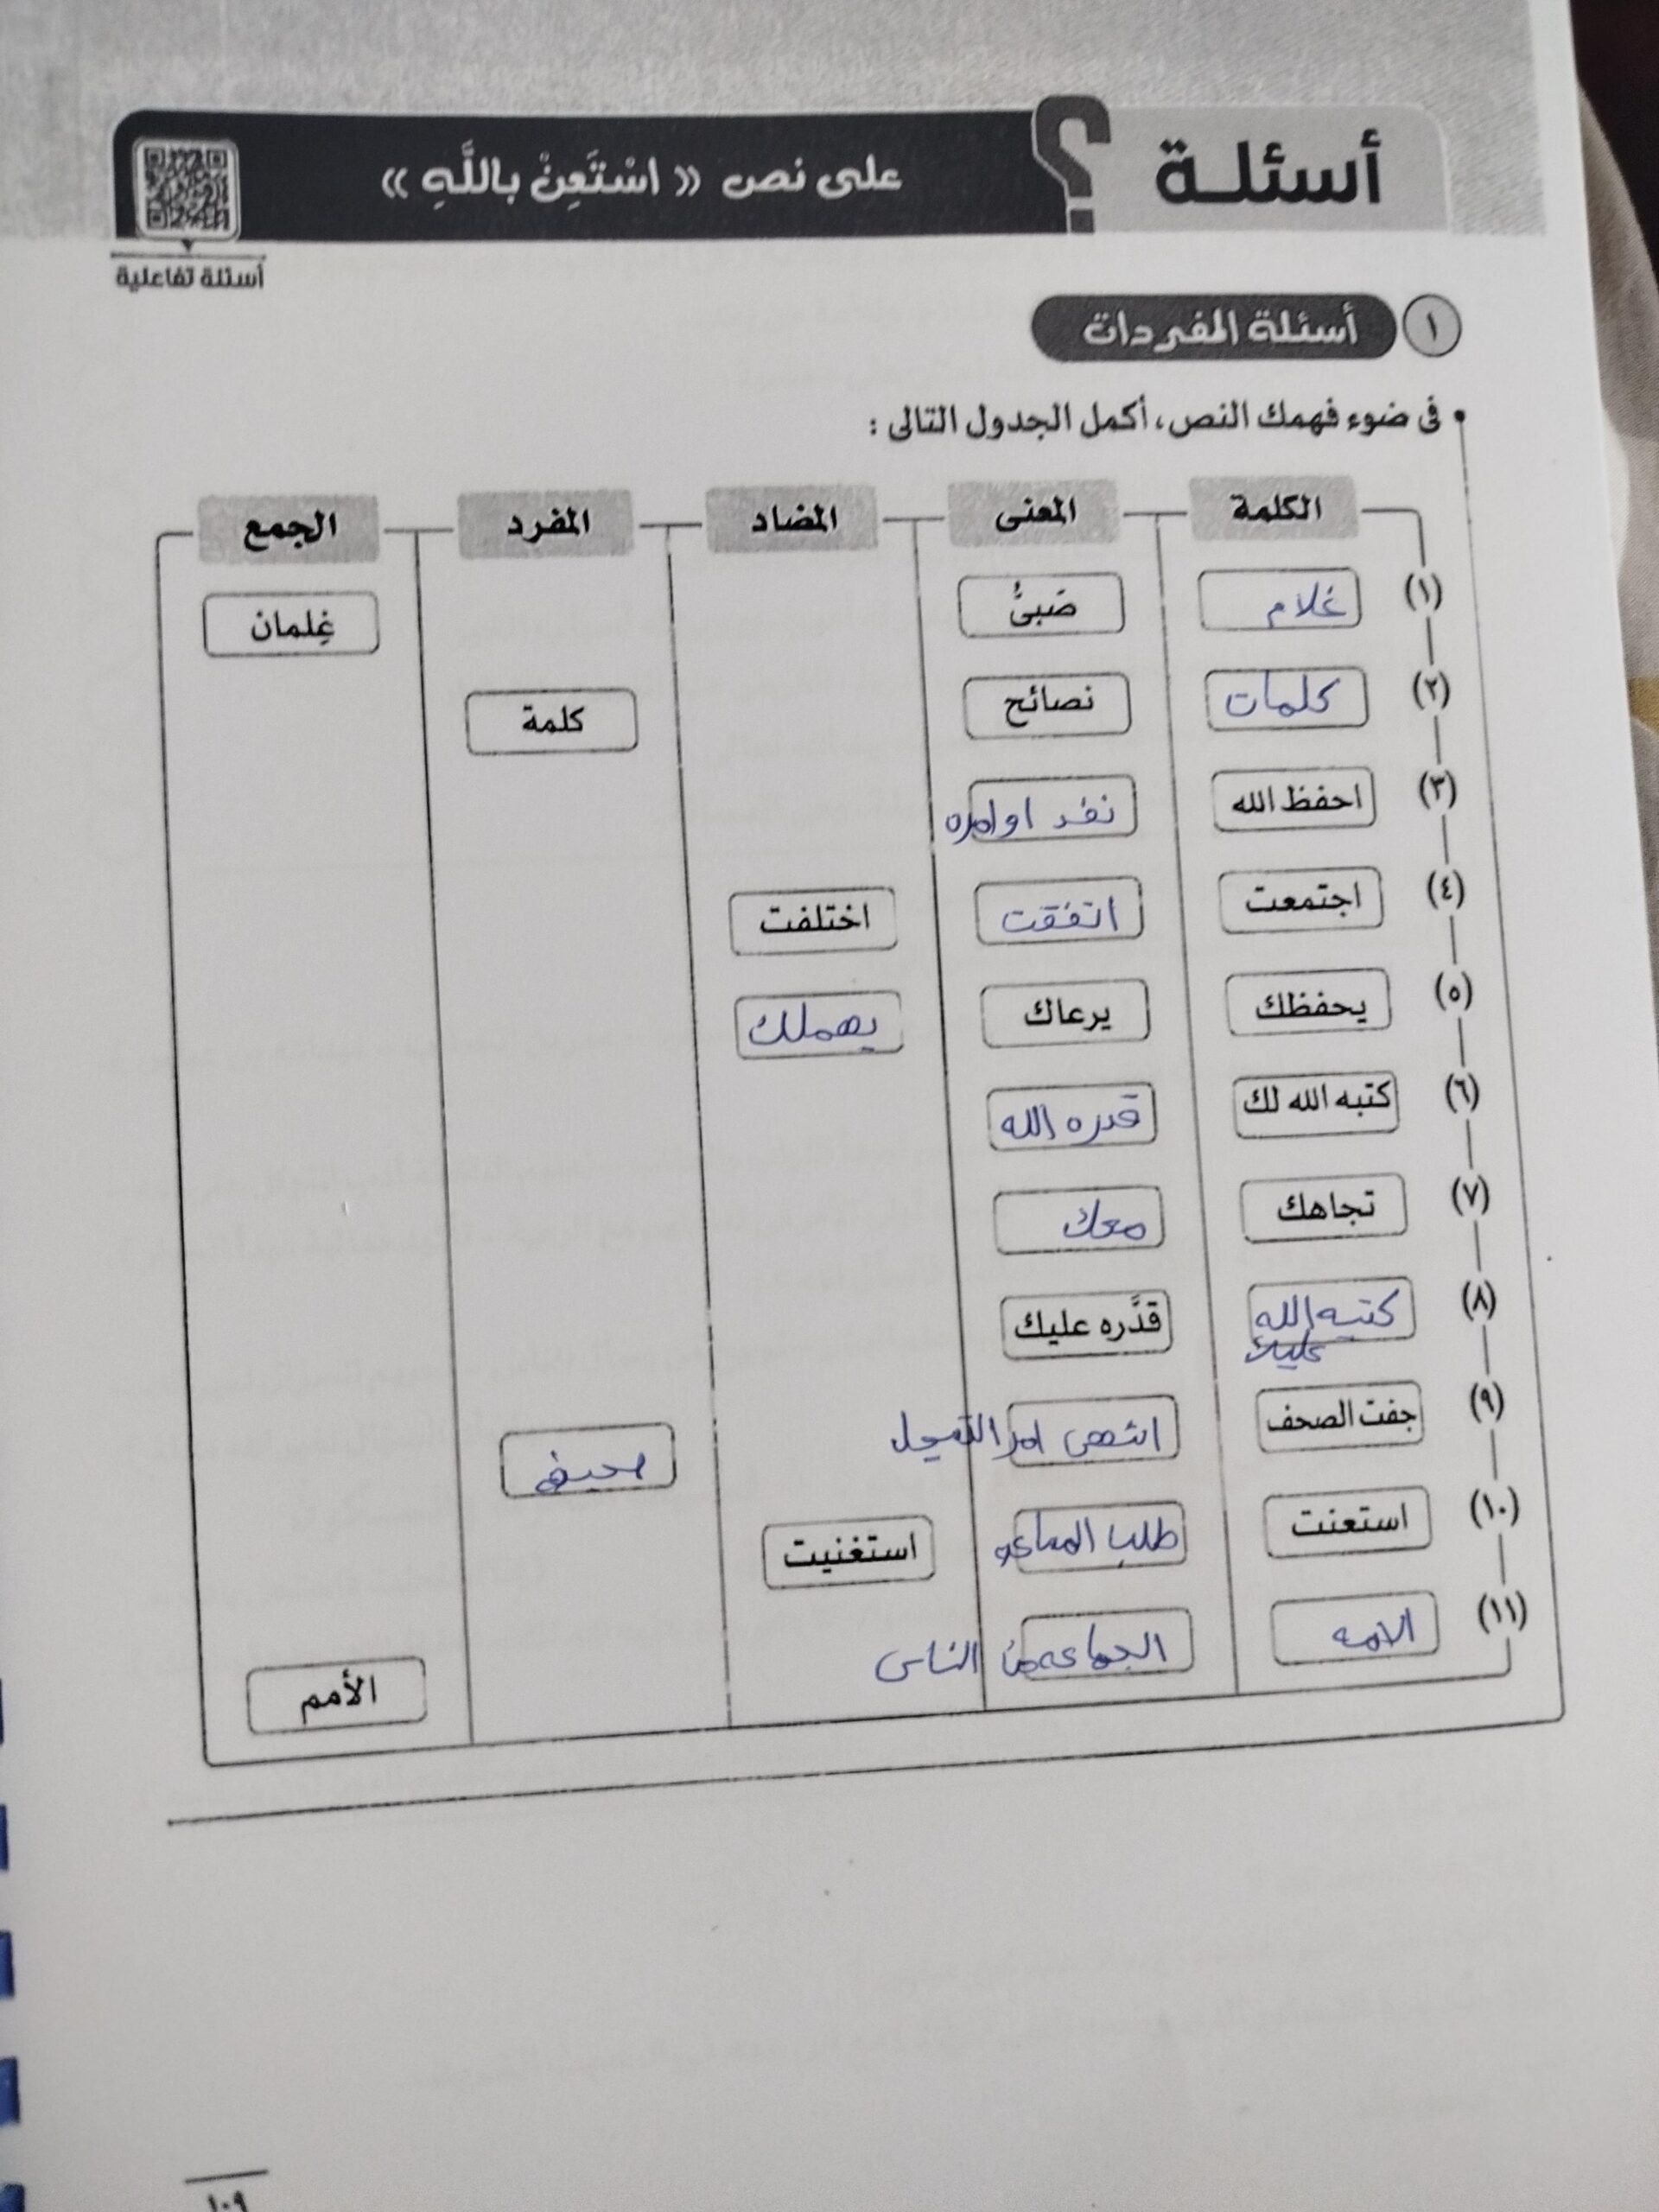 أسئلة ؟ على نص « اسْتَعِنْ باللَّهِ »
أسئلة تفاعلية
١ أسئلة المفردات
• فى ضوء فهمك النص، أكمل الجدول التالى :
الكلمة المعنى المضاد المفرد الجمع
(١) غلام صَبىُّ غِلمان
(٢) كلمات نصائح كلمة
(٣) احفظ الله نفد اوامره
(٤) اجتمعت اتفقت اختلفت
(٥) يحفظك يرعاك يهملك
(٦) كتبه الله لك قدره الله
(٧) تجاهك معك
(٨) كتبه الله عليك قدَّره عليك
(٩) جفت الصحف انتهى امر التسجيل صحيفه
(١٠) استعنت طلب المساعده استغنيت
(١١) الامه الجماعه من الناس الأمم
١٠٩